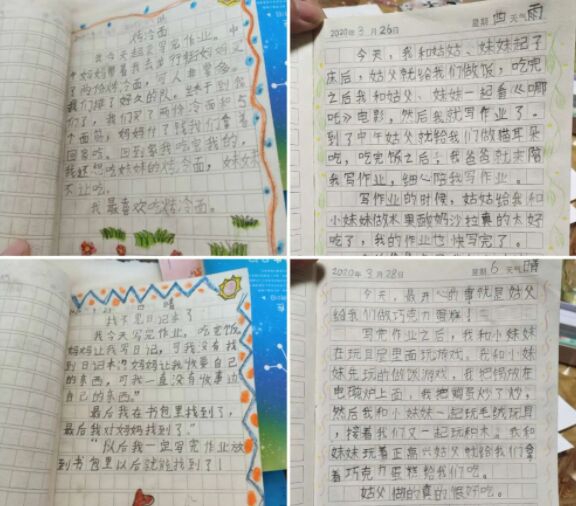 烤冷面
我今天起又写完作业。中
午妈妈带着我去步行街妈妈又
了两份烤冷面,可人非常多。
我们排了好久的队。终于到我
们了,我们买了两份冷面和5
个面筋,妈妈付了钱我们拿着
回家吃。回到家我吃完我的,
我还想吃妹妹的烤冷面,妹妹
不让吃。
我最喜欢吃烤冷面。
2020年3月26日 星期四天气雨
今天,我和姑姑、妹妹起了
床后,姑父就给我们做饭,吃完
之后我和姑父、妹妹一起看《哪
吒》电影,然后我就写作业了。
到了中午姑父就给我们做猫耳朵
吃,吃完饭之后,我爸爸就来陪
我写作业,细心陪我写作业。
写作业的时候,姑姑给我和
小妹妹做水果酸奶沙拉真的太好
吃了,我的作业也快写完了。
晴
找不见日记本了
我今天写完作业,吃完饭
妈妈让我写日记,可我没有找
到日记本。妈妈让我收要自己
的东西,可我一直没有收拾
自己的东西。"
最后我在书包里找到了,
最后我对妈妈找到了"
"以后我一定写完作业放
到书包里以后就能找到了!
2020年3月28日 星期6天气晴
今天,最开心的事就是姑父
给我们做巧克力蛋糕!
写完作业之后,我和小妹妹
在玩具屋里面玩游戏。我和小妹
妹先玩的做饭游戏,我把锅放在
电磁炉上面,我把鸡蛋炒了炒。
然后我和小妹妹一起玩毛绒玩具
,接着我们又一起玩积木。我和
妹妹玩着正高兴姑父就给我们拿
着巧克力蛋糕给我们吃。
姑父做的真的很好吃。